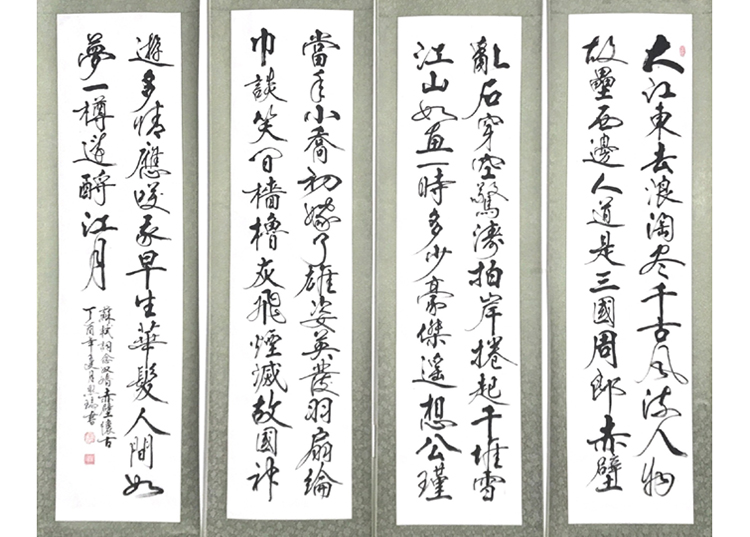 大江東去浪淘尽千古風流人物
故壘西邊人道是三國周郎赤壁
亂石穿空驚濤拍岸捲起千堆雪
江山如画一時多少豪傑遙想公瑾
當年小喬初嫁了雄姿英發羽扇綸
巾談笑間檣櫓灰飛煙滅故國神
遊多情應笑我早生華髮人間如
夢一樽還酹江月
蘇軾詞念奴嬌赤壁懷古
丁酉年 月 書